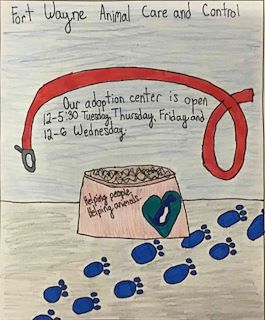 Fort Wayne Animal Care and Control
Our adoption center is open
12-5:30 Tuesday, Thursday, Friday and
12-6 Wednesday.
Helping people,
Helping animals.